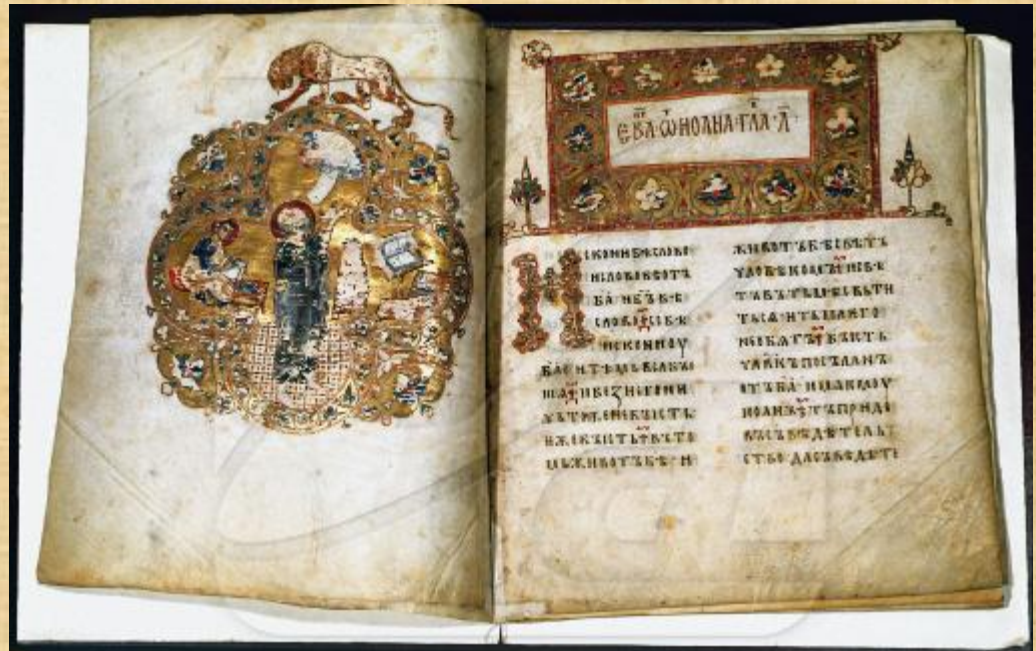 ЕВА · ѾИОАНА · ГЛА · А
ИСКОНИ БѢ СЛОВО
И СЛОВО БѢ ОТЪ
БА · И БЪ БѢ
СЛОВО · СЕ БѢ
ИСКОНИ ОУ
БА · И ТѢМЬ ВЬСꙖ БЫ
ШѦ · И БЕЗ НЕГО НИ
ЧЬТОЖЕ НЕ БЫСТЬ ·
ЕЖЕ БЫСТЬ · ВЪ ТО
МЬ ЖИВОТЪ БѢ · И
ЖИВОТЪ БѢ СВѢТЪ
ЧЛОВѢКОМЪ · И СВѢ
ТЪ ВЪ ТЬМѢ СВЬТИ
ТЬСѦ · И ТЬМА ЕГО
НЕ ОБѦТЪ · БЫСТЬ
ЧЛВКЪ ПОСЪЛАНЪ
ОТЪ БА · ИМѦ ЕМОУ
ИОАНЪ · ТЪ ПРИДЕ
ВЪ СЪВѢДѢТЕЛЬ
СТВО · ДА СЪВѢДѢТЕ